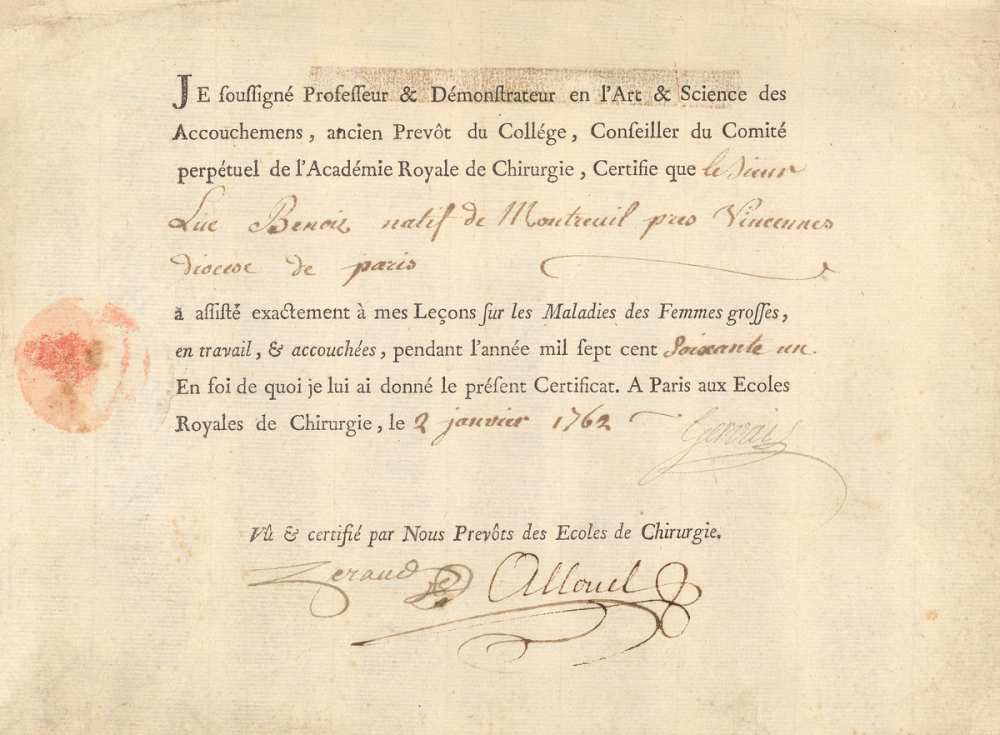 JE ſouſſigné Profeſſeur & Démonſtrateur en l'Art & Science des
Accouchemens, ancien Prevôt du Collége, Conſeiller du Comité
perpétuel de l'Académie Royale de Chirurgie, Certifie que le Sieur
Luc Benoiz natif de Montreuil pres Vincennes
diocese de paris
à aſſiſté exactement à mes Leçons ſur les Maladies des Femmes groſſes,
en travail, & accouchées, pendant l'année mil ſept cent Soixante un.
En foi de quoi je lui ai donné le préſent Certificat. A Paris aux Ecoles
Royales de Chirurgie, le 2 janvier 1762
Gervais
Vû & certifié par Nous Prevôts des Ecoles de Chirurgie.
Allouel